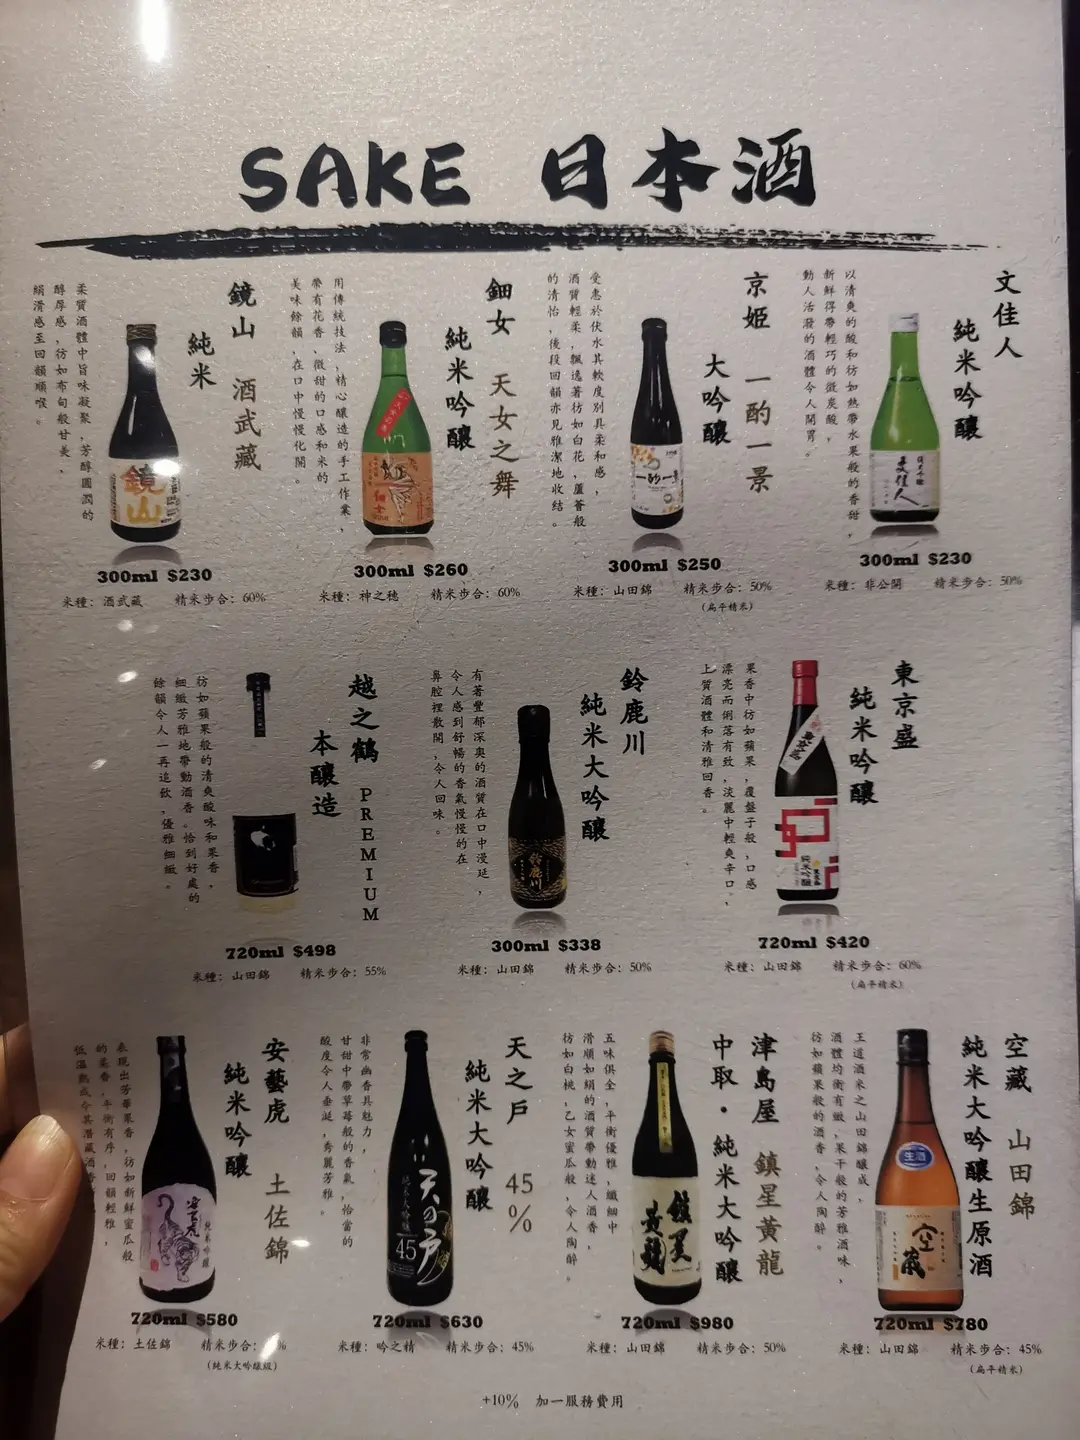 SAKE 日本酒
文佳人
純米吟釀
以清爽的酸和彷如熱帶水果般的香甜，
新鮮得帶輕巧的微炭酸，
動人活潑的酒體令人開胃。
300ml $230
米種：非公開 精米步合：50%
京姬 一酌一景
大吟釀
受惠於伏水其軟度別具柔和感，
酒質輕柔，飄逸著彷如白花，蘆薈般
的清怡，後段回韻亦見雅潔地收結。
300ml $250
米種：山田錦 精米步合：50%
(扁平精米)
鈿女 天女之舞
純米吟釀
用傳統技法，精心釀造的手工作業，
帶有花香，微甜的口感和米的
美味餘韻，在口中慢慢化開。
300ml $260
米種：神之穗 精米步合：60%
鏡山 酒武藏
純米
柔質酒體中旨味凝聚，芳醇圓潤的
醇厚感，彷如布甸般甘美，
絹滑感至回韻順喉。
300ml $230
米種：酒武藏 精米步合：60%
東京盛
純米吟釀
果香中彷如蘋果，覆盤子般，口感
漂亮而俐落有致，淡麗中輕爽辛口，
上質酒體和清雅回香。
720ml $420
米種：山田錦 精米步合：60%
(扁平精米)
鈴鹿川
純米大吟釀
有著豐郁深奧的酒質在口中漫延，
令人感到舒暢的香氣慢慢的在
鼻腔裡散開，令人回味。
300ml $338
米種：山田錦 精米步合：50%
越之鶴 PREMIUM
本釀造
彷如蘋果般的清爽酸味和果香，
細緻芳雅地帶動酒香。恰到好處的
餘韻令人一再追飲，優雅細緻。
720ml $498
米種：山田錦 精米步合：55%
空藏 山田錦
純米大吟釀生原酒
王道酒米之山田錦釀成，
酒體均衡有緻，果干般的芳雅酒味，
彷如蘋果般的酒香，令人陶醉。
720ml $780
米種：山田錦 精米步合：45%
(扁平精米)
津島屋 鎮星黃龍
中取・純米大吟釀
五味俱全，平衡優雅，纖細中
滑順如絹的酒質帶動迷人酒香，
彷如白桃，乙女蜜瓜般，令人陶醉。
720ml $980
米種：山田錦 精米步合：50%
天之戶 45%
純米大吟釀
非常幽香具魅力，
甘甜中帶草莓般的香氣，恰當的
酸度令人垂涎，秀麗芳雅。
720ml $630
米種：吟之精 精米步合：45%
安藝虎 土佐錦
純米吟釀
表現出芳華果香，彷如新鮮蜜瓜般
的柔香，平衡有序，回韻輕雅，
低溫熟成令其潛藏酒香
720ml $580
米種：土佐錦 精米步合：
(純米大吟釀級)
+10% 加一服務費用